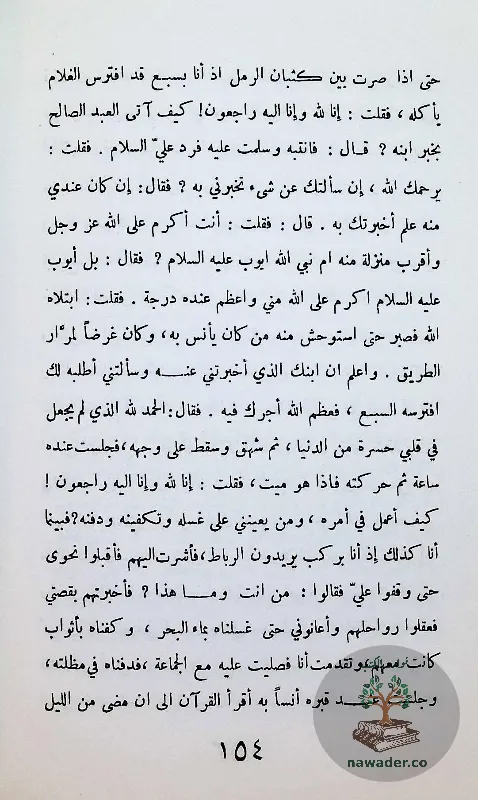 حتى اذا صرت بين كثبان الرمل اذ أنا بسبع قد افترس الغلام
يأكله ، فقلت : إنا لله وإنا اليه راجعون! كيف آتى العبد الصالح
بخبر ابنه ? قال : فانتبه وسلمت عليه فرد عليّ السلام . فقلت :
يرحمك الله ، إن سألتك عن شىء تخبرني به ? فقال: إن كان عندي
منه علم أخبرتك به . قال : فقلت : أنت أكرم على الله عز وجل
وأقرب منزلة منه ام نبي الله ايوب عليه السلام ? فقال : بل أيوب
عليه السلام اكرم على الله مني واعظم عنده درجة . فقلت: ابتلاه
الله فصبر حتى استوحش منه من كان يأنس به، وكان غرضاً لمرّار
الطريق . واعلم ان ابنك الذي أخبرتني عنه وسألتني أطلبه لك
افترسه السبع ، فعظم الله أجرك فيه . فقال: الحمد لله الذي لم يجعل
في قلبي حسرة من الدنيا ، ثم شهق وسقط على وجهه، فجلست عنده
ساعة ثم حركته فاذا هو ميت، فقلت : إنا لله وإنا اليه راجعون !
كيف أعمل في أمره ، ومن يعينني على غسله وتكفينه ودفنه? فبينما
أنا كذلك إذ أنا بركب يريدون الرباط، فأشرت اليهم فأقبلوا نحوى
حتى وقفوا عليّ فقالوا : من انت وما هذا ? فأخبرتهم بقصتي
فعقلوا رواحلهم وأعانوني حتى غسلناه بماء البحر ، وكفناه بأثواب
كانت معهم، وتقدمت أنا فصليت عليه مع الجماعة ، فدفناه في مظلته،
وجلست عند قبره أنساً به أقرأ القرآن الى ان مضى من الليل
١٥٤
nawader.co